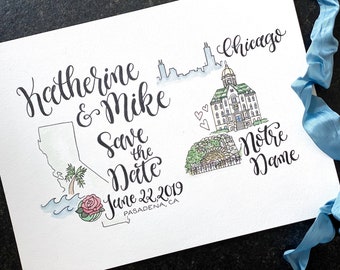 Katherine
& Mike
Save
the
Date
June 22, 2019
PASADENA, CA
Chicago
Notre
Dame